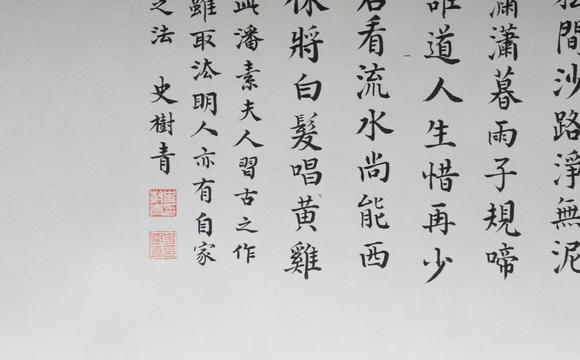 間沙路淨無泥
瀟瀟暮雨子規啼
誰道人生惜再少
君看流水尚能西
休將白髮唱黄雞
此潘素夫人習古之作
雖取法明人亦有自家
之法 史樹青